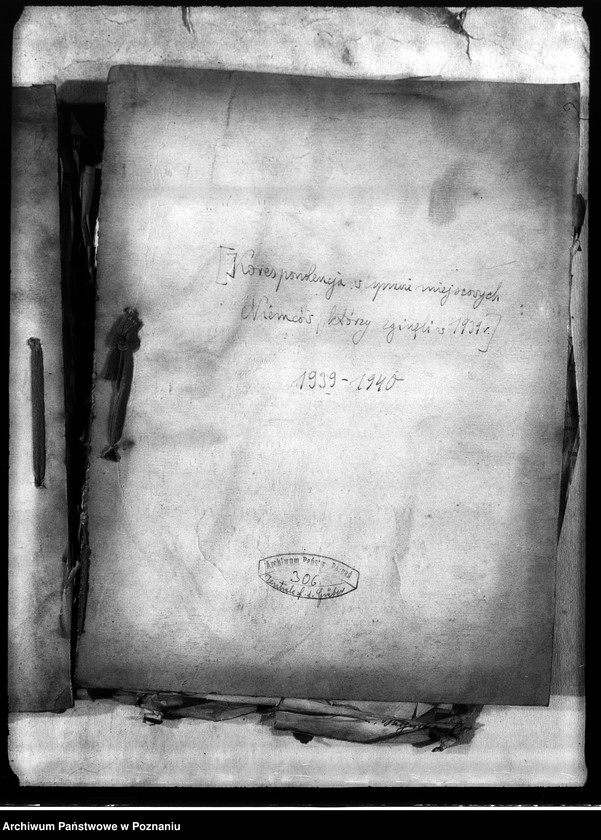 [Korespondencja w sprawie miejscowych
Niemców, którzy zginęli w 1939 r.]
1939-1940
Archiwum Państw. Poznań
306
Zentrale f. d. Gräber
Archiwum Państwowe w Poznaniu